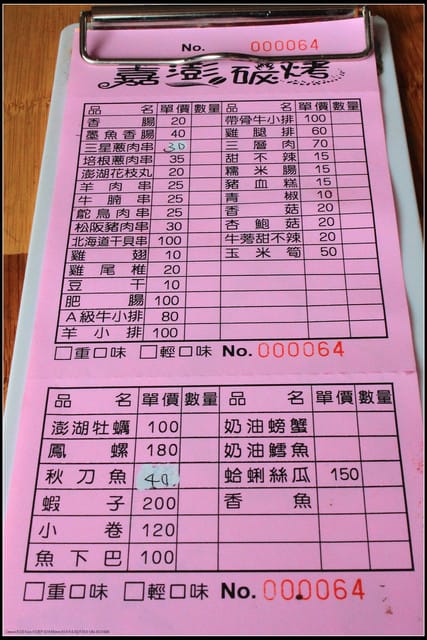 No. 000064
嘉澎碳烤
品名 單價 數量 品名 單價 數量
香腸 20 帶骨牛小排 100
墨魚香腸 40 雞腿排 60
三星蔥肉串 30 三層肉 70
培根蔥肉串 35 甜不辣 15
澎湖花枝丸 20 糯米腸 15
羊肉串 25 豬血糕 15
牛腩串 25 青椒 10
鴕鳥肉串 25 香菇 20
松阪豬肉串 30 杏鮑菇 20
北海道干貝串 100 牛蒡甜不辣 20
雞翅 10 玉米筍 50
雞尾椎 20
豆干 10
肥腸 100
A級牛小排 80
羊小排 100
□重口味 □輕口味 No. 000064
品名 單價 數量 品名 單價 數量
澎湖牡蠣 100 奶油螃蟹
鳳螺 180 奶油鱈魚
秋刀魚 40 蛤蜊絲瓜 150
蝦子 200 香魚
小卷 120
魚下巴 100
□重口味 □輕口味 No. 000064